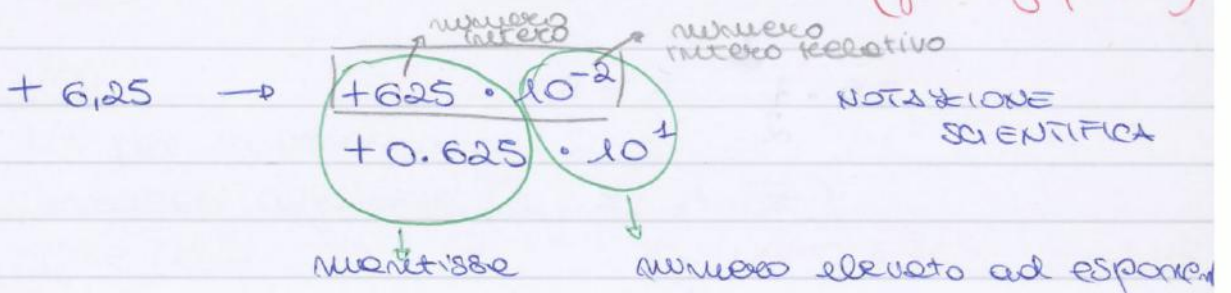 numero
intero
numero
intero relativo
+ 6,25 → +625 · 10⁻² NOTAZIONE
+0.625 · 10¹ SCIENTIFICA
mantisse numero elevato ad esponen